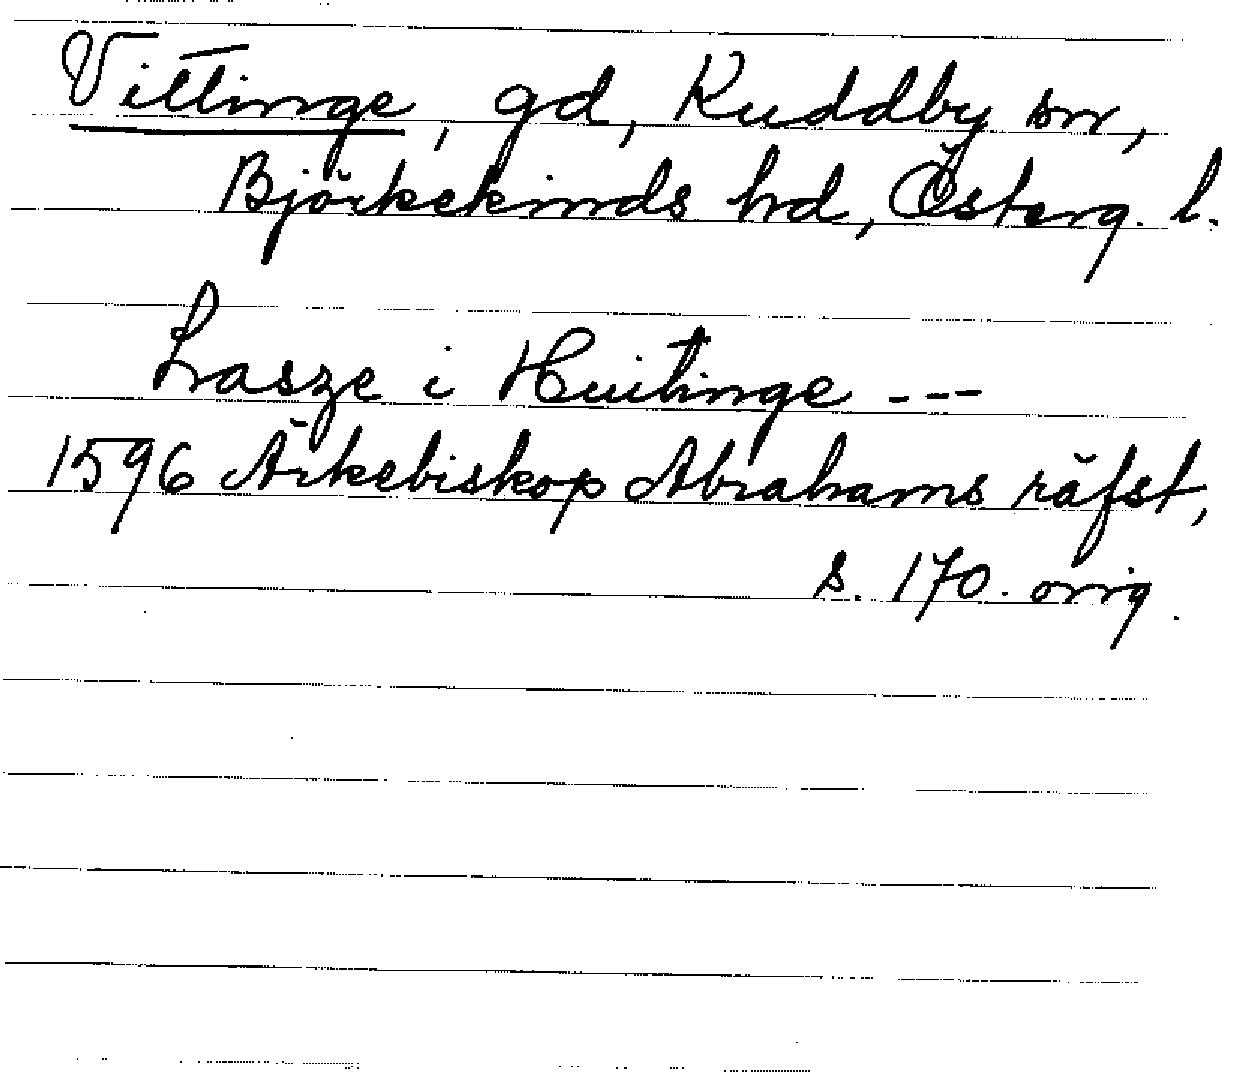 Vittinge, gd, Kuddby sn,
Björkekinds hd, Österg. l.
Lasze i Huitinge ---
1596 Ärkebiskop Abrahams räfst,
s. 170. orig.